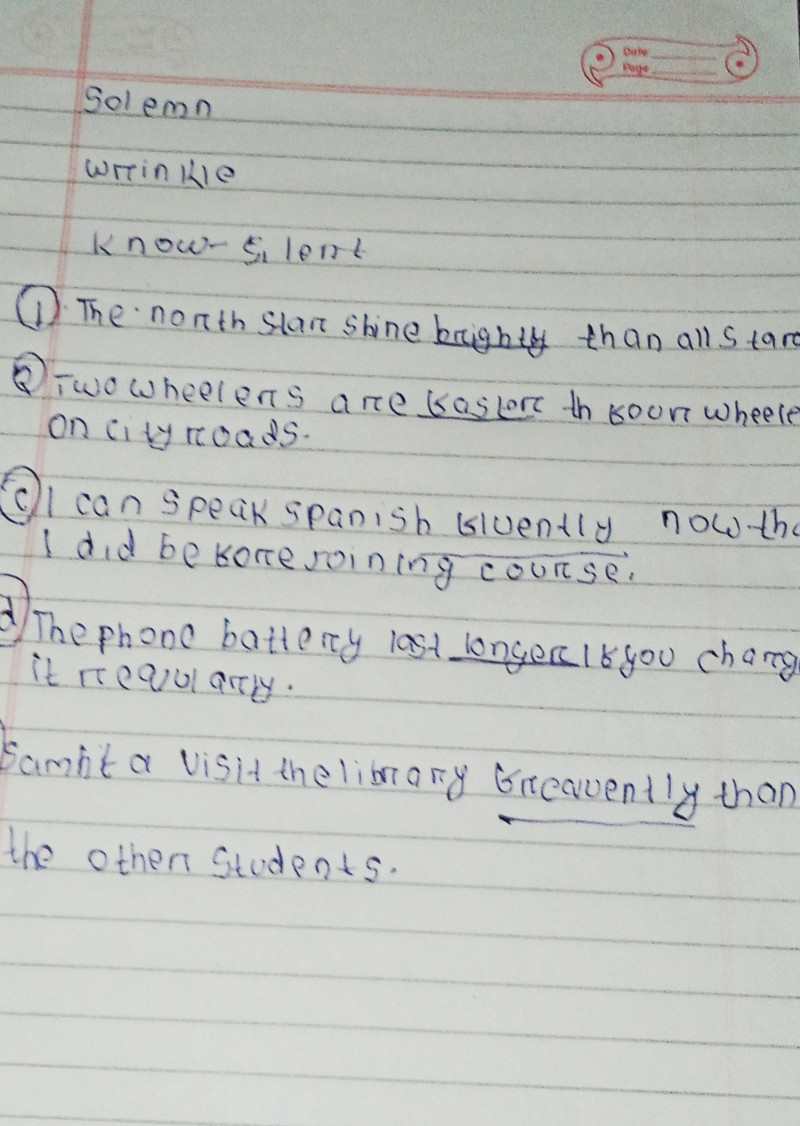 Date
Page
Solemn
Wrinkle
Know - Silent
① The north star shine brightly than all stars
② Two wheelers are faster th four wheele
on city roads.
ⓒ I can speak spanish fluently now tha
I did before joining course.
ⓓ The phone battery last longer if you charg
it regularly.
Samita visit the library frequently than
the other students.